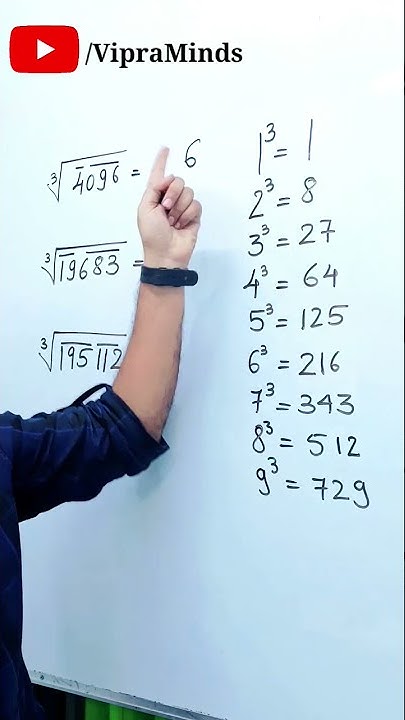 /VipraMinds
∛4096 = 6
∛19683 =
∛195112
1³ = 1
2³ = 8
3³ = 27
4³ = 64
5³ = 125
6³ = 216
7³ = 343
8³ = 512
9³ = 729